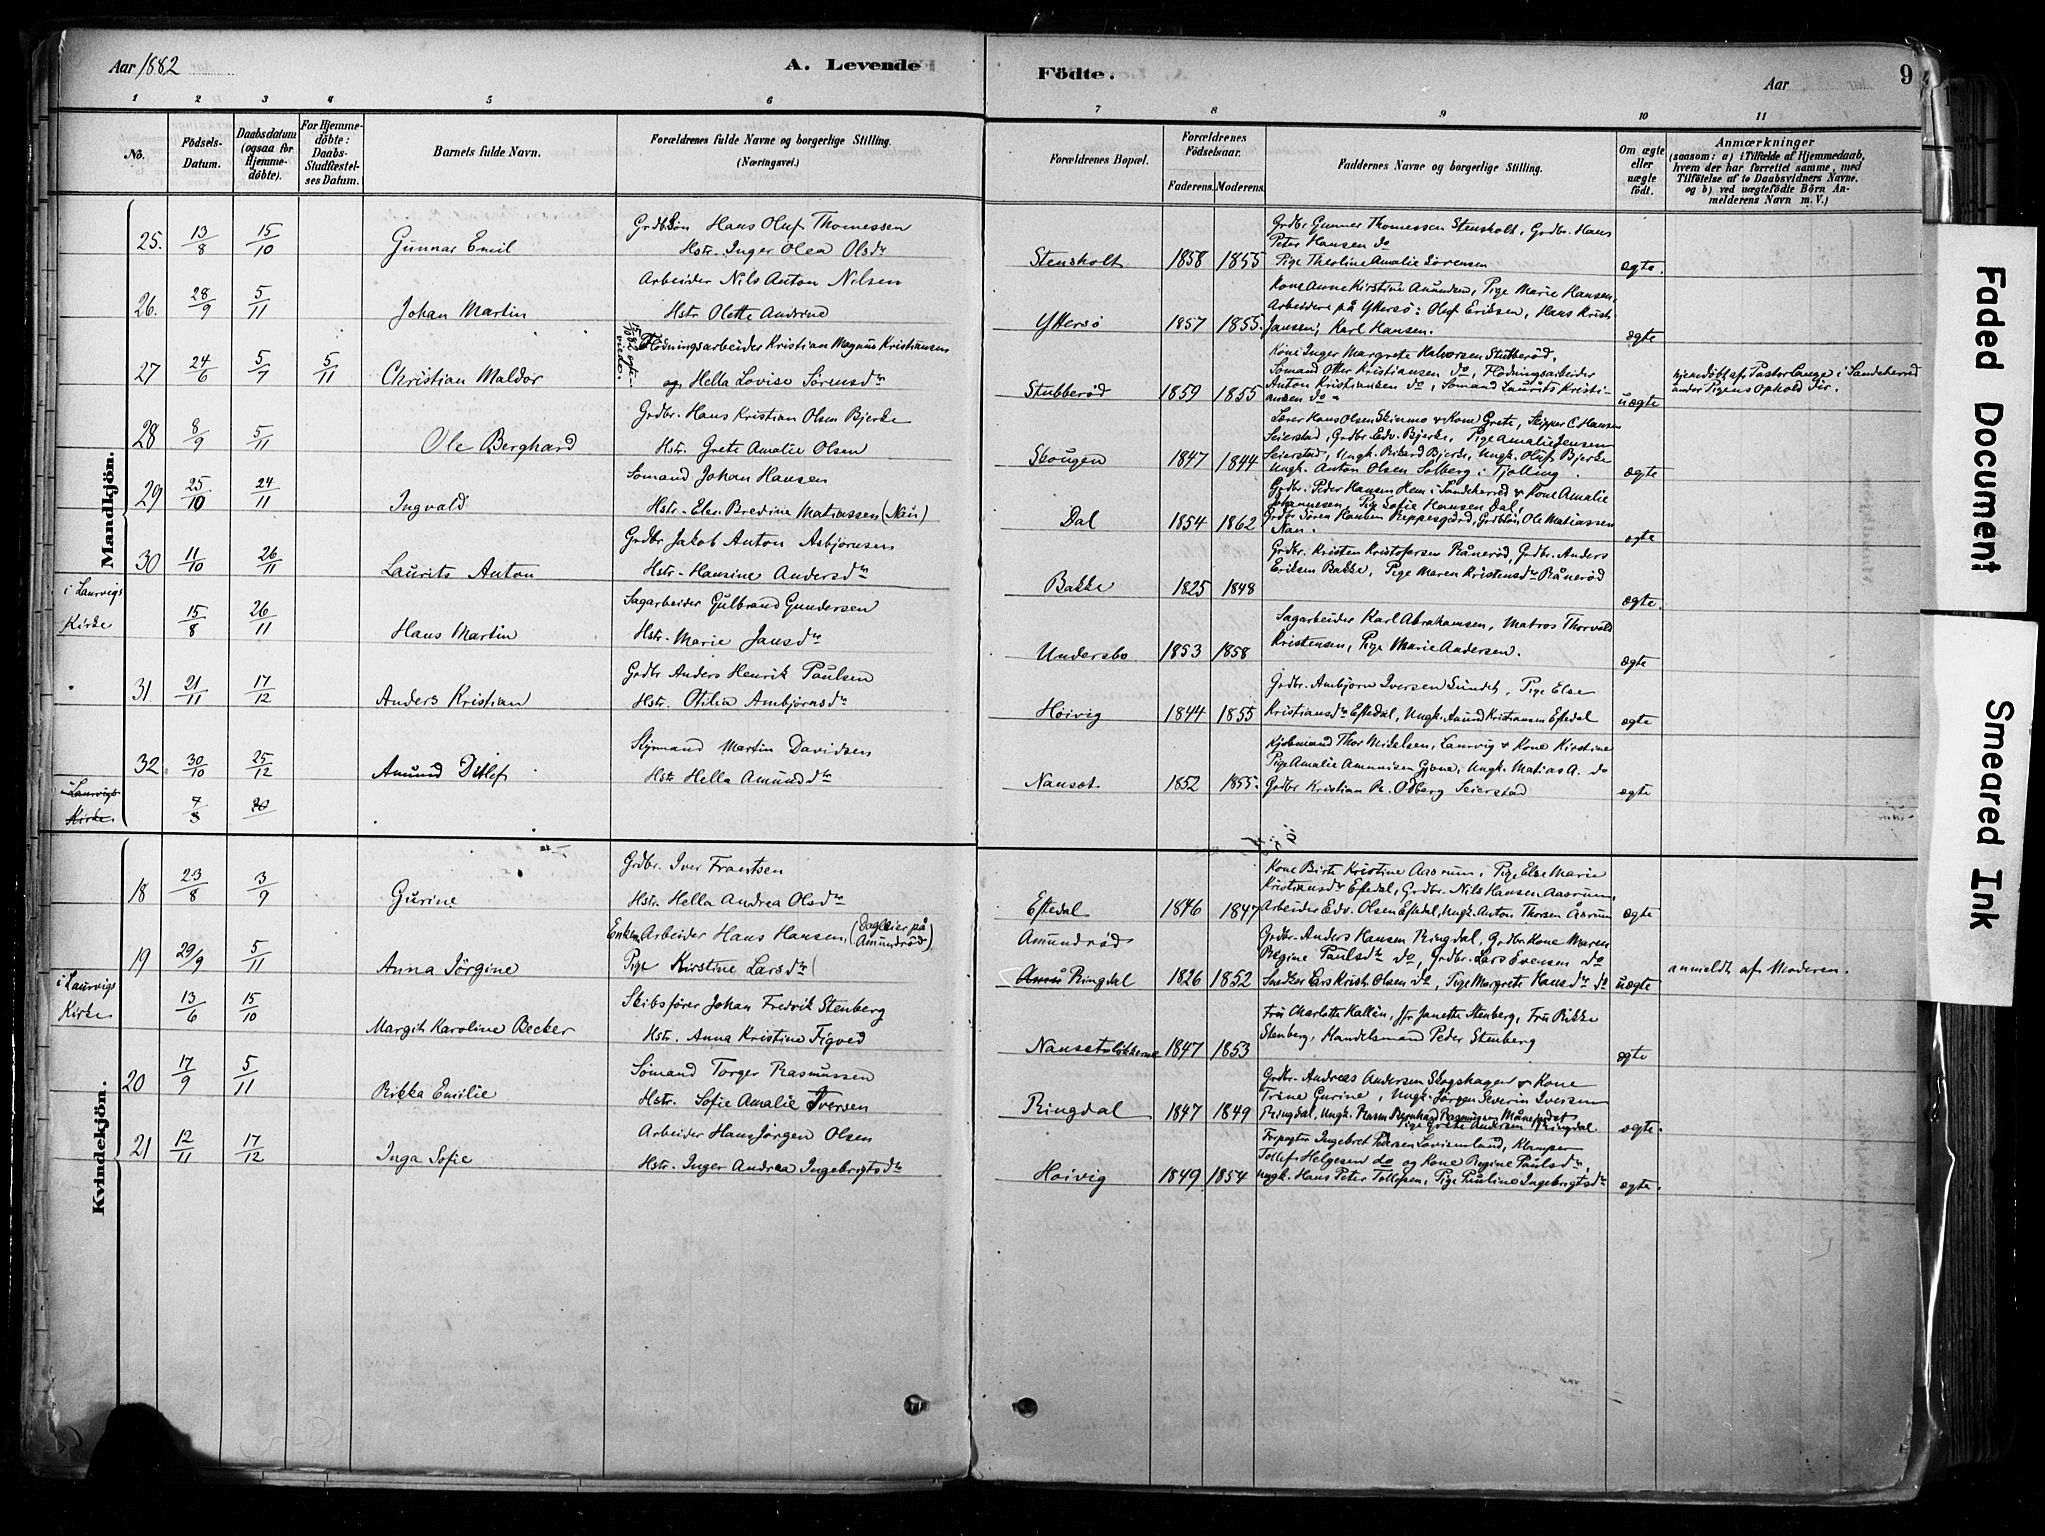 Aar 1882
A. Levende
Födte.
Aar
9
1 2 3 4 5 6 7 8 9 10 11
No.
Födsels-Datum.
Daabsdatum (ogsaa för Hjemme-döbte).
For Hjemme-döbte: Daabs-Stadfæstel-ses Datum.
Barnets fulde Navn.
Forældrenes fulde Navne og borgerlige Stilling.
(Næringsvei.)
Forældrenes Bopæl.
Forældrenes Födselsaar.
Faderens. Moderens.
Faddernes Navne og borgerlige Stilling.
Om ægte eller uægte födt.
Anmærkninger
(saasom: a) i Tilfælde af Hjemmedaab,
hvem der har forrettet samme, med
Tilföielse af to Daabsvidners Navne,
og b) ved uægtefödte Börn An-
melderens Navn m. V.)
Mandkjön.
25. 13/8 15/10 Gunnar Emil
Grdbr.Sön Hans Oluf Thomessen
Hstr. Inger Olea Olsdr
Stensholt 1858 1855
Grdbr Gunner Thomessen Stensholt, Grdbr. Hans
Peter Hansen do
Pige Theoline Amalie Sörensen
ægte.
26. 28/9 5/11 Johan Martin
Arbeider Nils Anton Nilsen
Hstr Olette Andrine
Yttersö 1857 1855.
Kone Anne Kirstine Amundsen, Pige Marie Hansen,
Arbeidere på Yttersö: Olef Eriksen, Hans Krist.
Jansen, Karl Hansen.
ægte
27 24/6 5/7 5/11 Christian Maldor
Flödningsarbeider Kristian Magnus Kristiansen
og Hella Lovise Sörensdr
Stubberöd 1859 1855
Kone Inger Margrete Halvorsen Stubberöd,
Sömand Otter Kristiansen do, Flödningsarbeider
Anton Kristiansen do, Sömand Laurits Kristi-
ansen do
uægte
hjemdöbt af Pastor Lange i Sandeherred
under Pigens Ophold der.
28 8/9 5/11 Ole Berghard
Grdbr. Hans Kristian Olsen Bjerke
Hstr. Grete Amalie Olsen
Skougen 1847 1844
Lærer Hans Olsen Skinmo & Kone Grete, Skipper C. Hansen
Seierstad, Grdbr Edv. Bjerke, Pige Amalie Jensen
Seierstad, Ungk. Rikard Bjerke, Ungk. Oluf Bjerke
Ungk. Anton Olsen Solberg i Tjölling.
ægte
29 25/10 24/11 Ingvald
Sömand Johan Hansen
Hstr. Elen Bredine Matiassen (Nau)
Dal 1854 1862
Grdbr. Peder Hansen Hem i Sandeherred & Kone Amalie
Johannesen, Pige Sofie Hansen Dal,
Grdbr Sören Hansen Reppesgård, Grdbrsön Ole Matiassen
Nau.
ægte
30 11/10 26/11 Laurits Anton
Grdbr Jakob Anton Asbjörnsen
Hstr. Hansine Andersdr
Bakke 1825 1848
Grdbr. Kristen Kristofersen Rånerød, Grdbr. Anders
Eriksen Bakke, Pige Maren Kristensdr Rånerød
ægte.
i Laurvigs Kirke
15/8 26/11 Hans Martin
Sagarbeider Gulbrand Gundersen
Hstr. Marie Jansdr
Undersbo 1853 1858
Sagarbeider Karl Abrahamsen, Matros Thorvald
Kristensen, Pige Marie Andersen.
ægte
31 21/11 17/12 Anders Kristian
Grdbr Anders Henrik Paulsen
Hstr. Otilia Ambjörnsdr
Höivig 1844 1855
Grdbr. Ambjörn Iversen Sundet, Pige Else
Kristiansdr Eftedal, Ungk. Amund Kristiansen Eftedal
ægte
32. 30/10 25/12 Amund Ditlef
Styrmand Martin Davidsen
Hstr Hella Amundsdr
Nanset 1852 1855.
Kjöbmand Thor Mikelsen, Laurvig & Kone Kirstine
Pige Amalie Amundsen Gjone, Ungk. Matias A. do
Grdbr Kristian Pe. Odberg Seierstad
ægte
i Laurvigs Kirke
Kvindekjön.
18 23/8 3/9 Gurine
Grdbr. Iver Frantsen
Hstr. Hella Andrea Olsdr
Eftedal 1846 1847
Kone Birte Kristine Aasrum, Pige Else Marie
Kristiansdr Eftedal, Grdbr. Nils Hansen Aasrum,
Arbeider Edv. Olsen Eftedal, Ungk. Anton Thorsen Åsrum
ægte
19 29/9 5/11 Anna Jörgine
Enkem. Arbeider Hans Hansen, (Dagleier på Amundröd)
Pige Kirstine Larsdr
Amundröd
Ringdal 1826 1852
Grdbr. Anders Hansen Ringdal, GrdbrKone Maren
Regine Paulsdr do, Grdbr. Lars Evensen do
Snedker Lars Krist. Olsen do, Pige Margrete Hansdr do
uægte
anmeldt af Moderen.
i Laurvigs Kirke
13/6 15/10 Margit Karoline Becker
Skibsförer Johan Fredrik Stenberg
Hstr. Anna Kristine Figved
Nansetlökkerne 1847 1853
Fru Charlotte Kallin, Jfr Janette Stenberg, Fru Rikke
Stenberg, Handelsmand Peder Stenberg
ægte
20 17/9 5/11 Rikka Emilie
Sömand Torger Rasmussen
Hstr. Sofie Amalie Iversen
Ringdal 1847 1849
Grdbr. Andreas Andersen Skogshagen & Kone
Trine Gurine, Ungk. Jörgen Severin Iversen
Ringdal, Ungk. Bernhard Rasmussen Månejordet
Pige Grete Andersen Ringdal.
ægte.
21 12/11 17/12 Inga Sofie
Arbeider Hans Jörgen Olsen
Hstr. Inger Andrea Ingebrigtsdr
Höivig 1849 1854
Forpagter Ingebret Pedersen Lovisenlund, Klamper
Tollef Helgesen do og Kone Regine Paulsdr,
Ungk. Hans Peter Tollefsen, Pige Pauline Ingebrigtsdr
ægte.
Faded Document
Smeared Ink